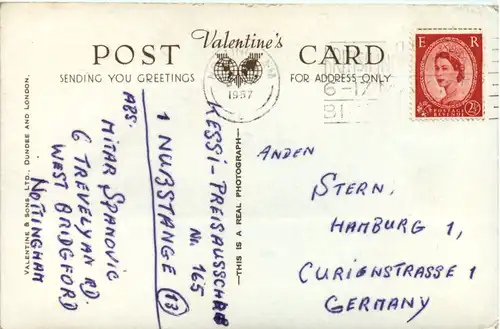 Valentine's
POST CARD
SENDING YOU GREETINGS
FOR ADDRESS ONLY
1957
6-17
E R
POSTAGE REVENUE
2½
VALENTINE & SONS, LTD., DUNDEE AND LONDON.
THIS IS A REAL PHOTOGRAPH
KESSI-PREISAUSSCHR
Nr. 165
1 NUßSTANGE (13)
ABS.
MITAR SPANOVIC
6 TREVELYAN RD.
WEST BRIDGFORD
NOTTINGHAM
ANDEN
STERN,
HAMBURG 1,
CURIENSTRASSE 1
GERMANY